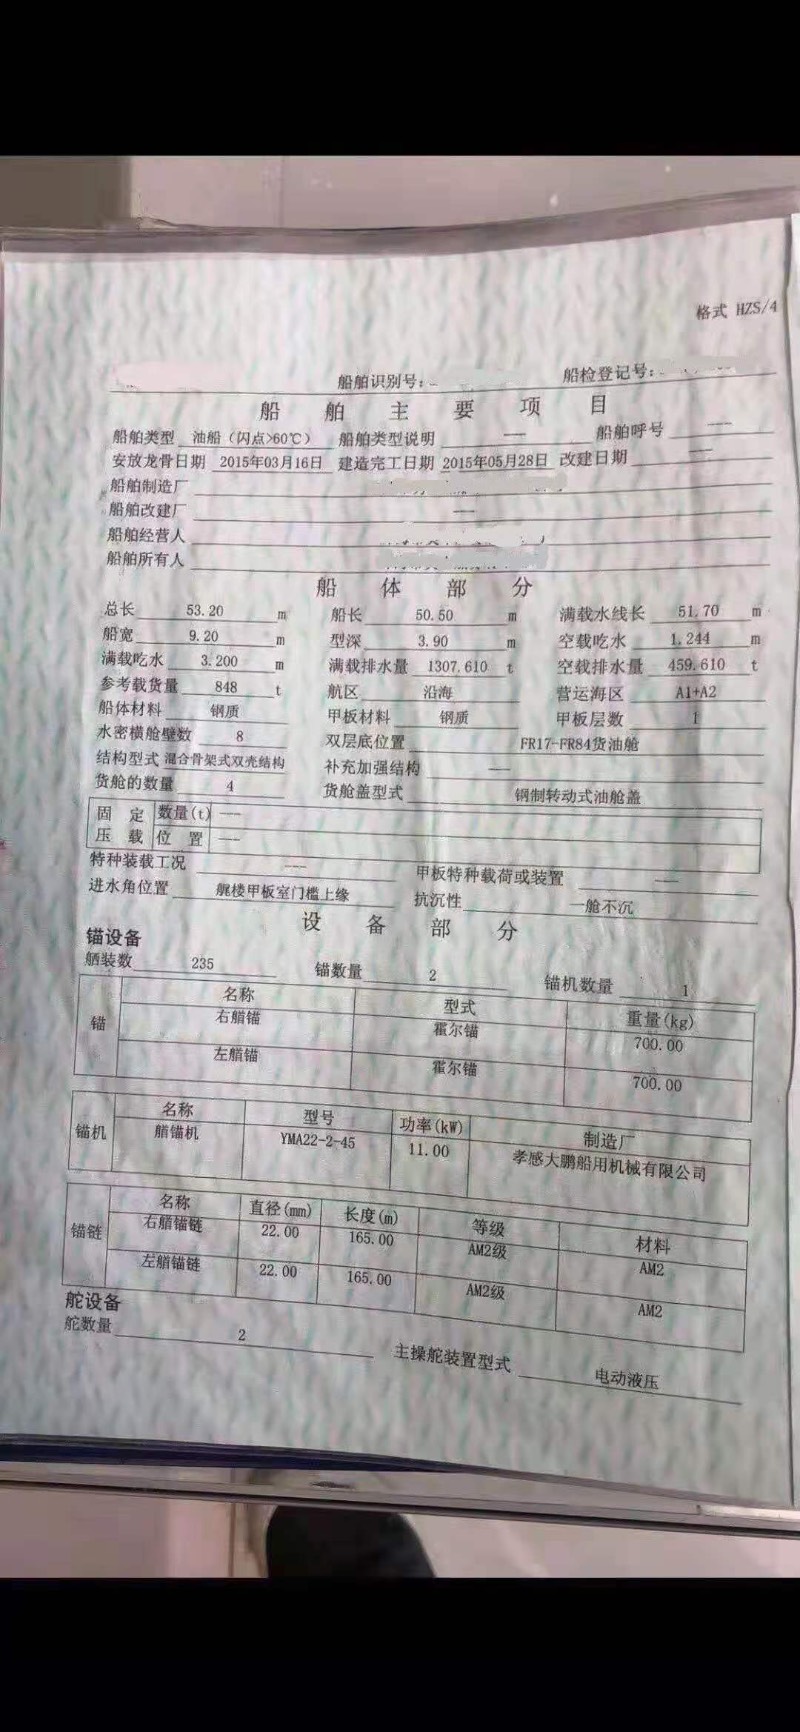 格式 HZS/4
船舶识别号: 船检登记号:
船舶主要项目
船舶类型 油船（闪点>60℃） 船舶类型说明 --- 船舶呼号 ---
安放龙骨日期 2015年03月16日 建造完工日期 2015年05月28日 改建日期 ---
船舶制造厂
船舶改建厂 ---
船舶经营人
船舶所有人
船体部分
总长 53.20 m 船长 50.50 m 满载水线长 51.70 m
船宽 9.20 m 型深 3.90 m 空载吃水 1.244 m
满载吃水 3.200 m 满载排水量 1307.610 t 空载排水量 459.610 t
参考载货量 848 t 航区 沿海 营运海区 A1+A2
船体材料 钢质 甲板材料 钢质 甲板层数 1
水密横舱壁数 8 双层底位置 FR17-FR84货油舱
结构型式 混合骨架式双壳结构 补充加强结构 ---
货舱的数量 4 货舱盖型式 钢制转动式油舱盖
固定 数量(t) ---
压载 位置 ---
特种装载工况 --- 甲板特种载荷或装置 ---
进水角位置 艉楼甲板室门槛上缘 抗沉性 一舱不沉
设备部分
锚设备
舾装数 235 锚数量 2 锚机数量 1
锚 名称 型式 重量(kg)
右艏锚 霍尔锚 700.00
左艏锚 霍尔锚 700.00
锚机 名称 型号 功率(kW) 制造厂
艏锚机 YMA22-2-45 11.00 孝感大鹏船用机械有限公司
锚链 名称 直径(mm) 长度(m) 等级 材料
右艏锚链 22.00 165.00 AM2级 AM2
左艏锚链 22.00 165.00 AM2级 AM2
舵设备
舵数量 2 主操舵装置型式 电动液压